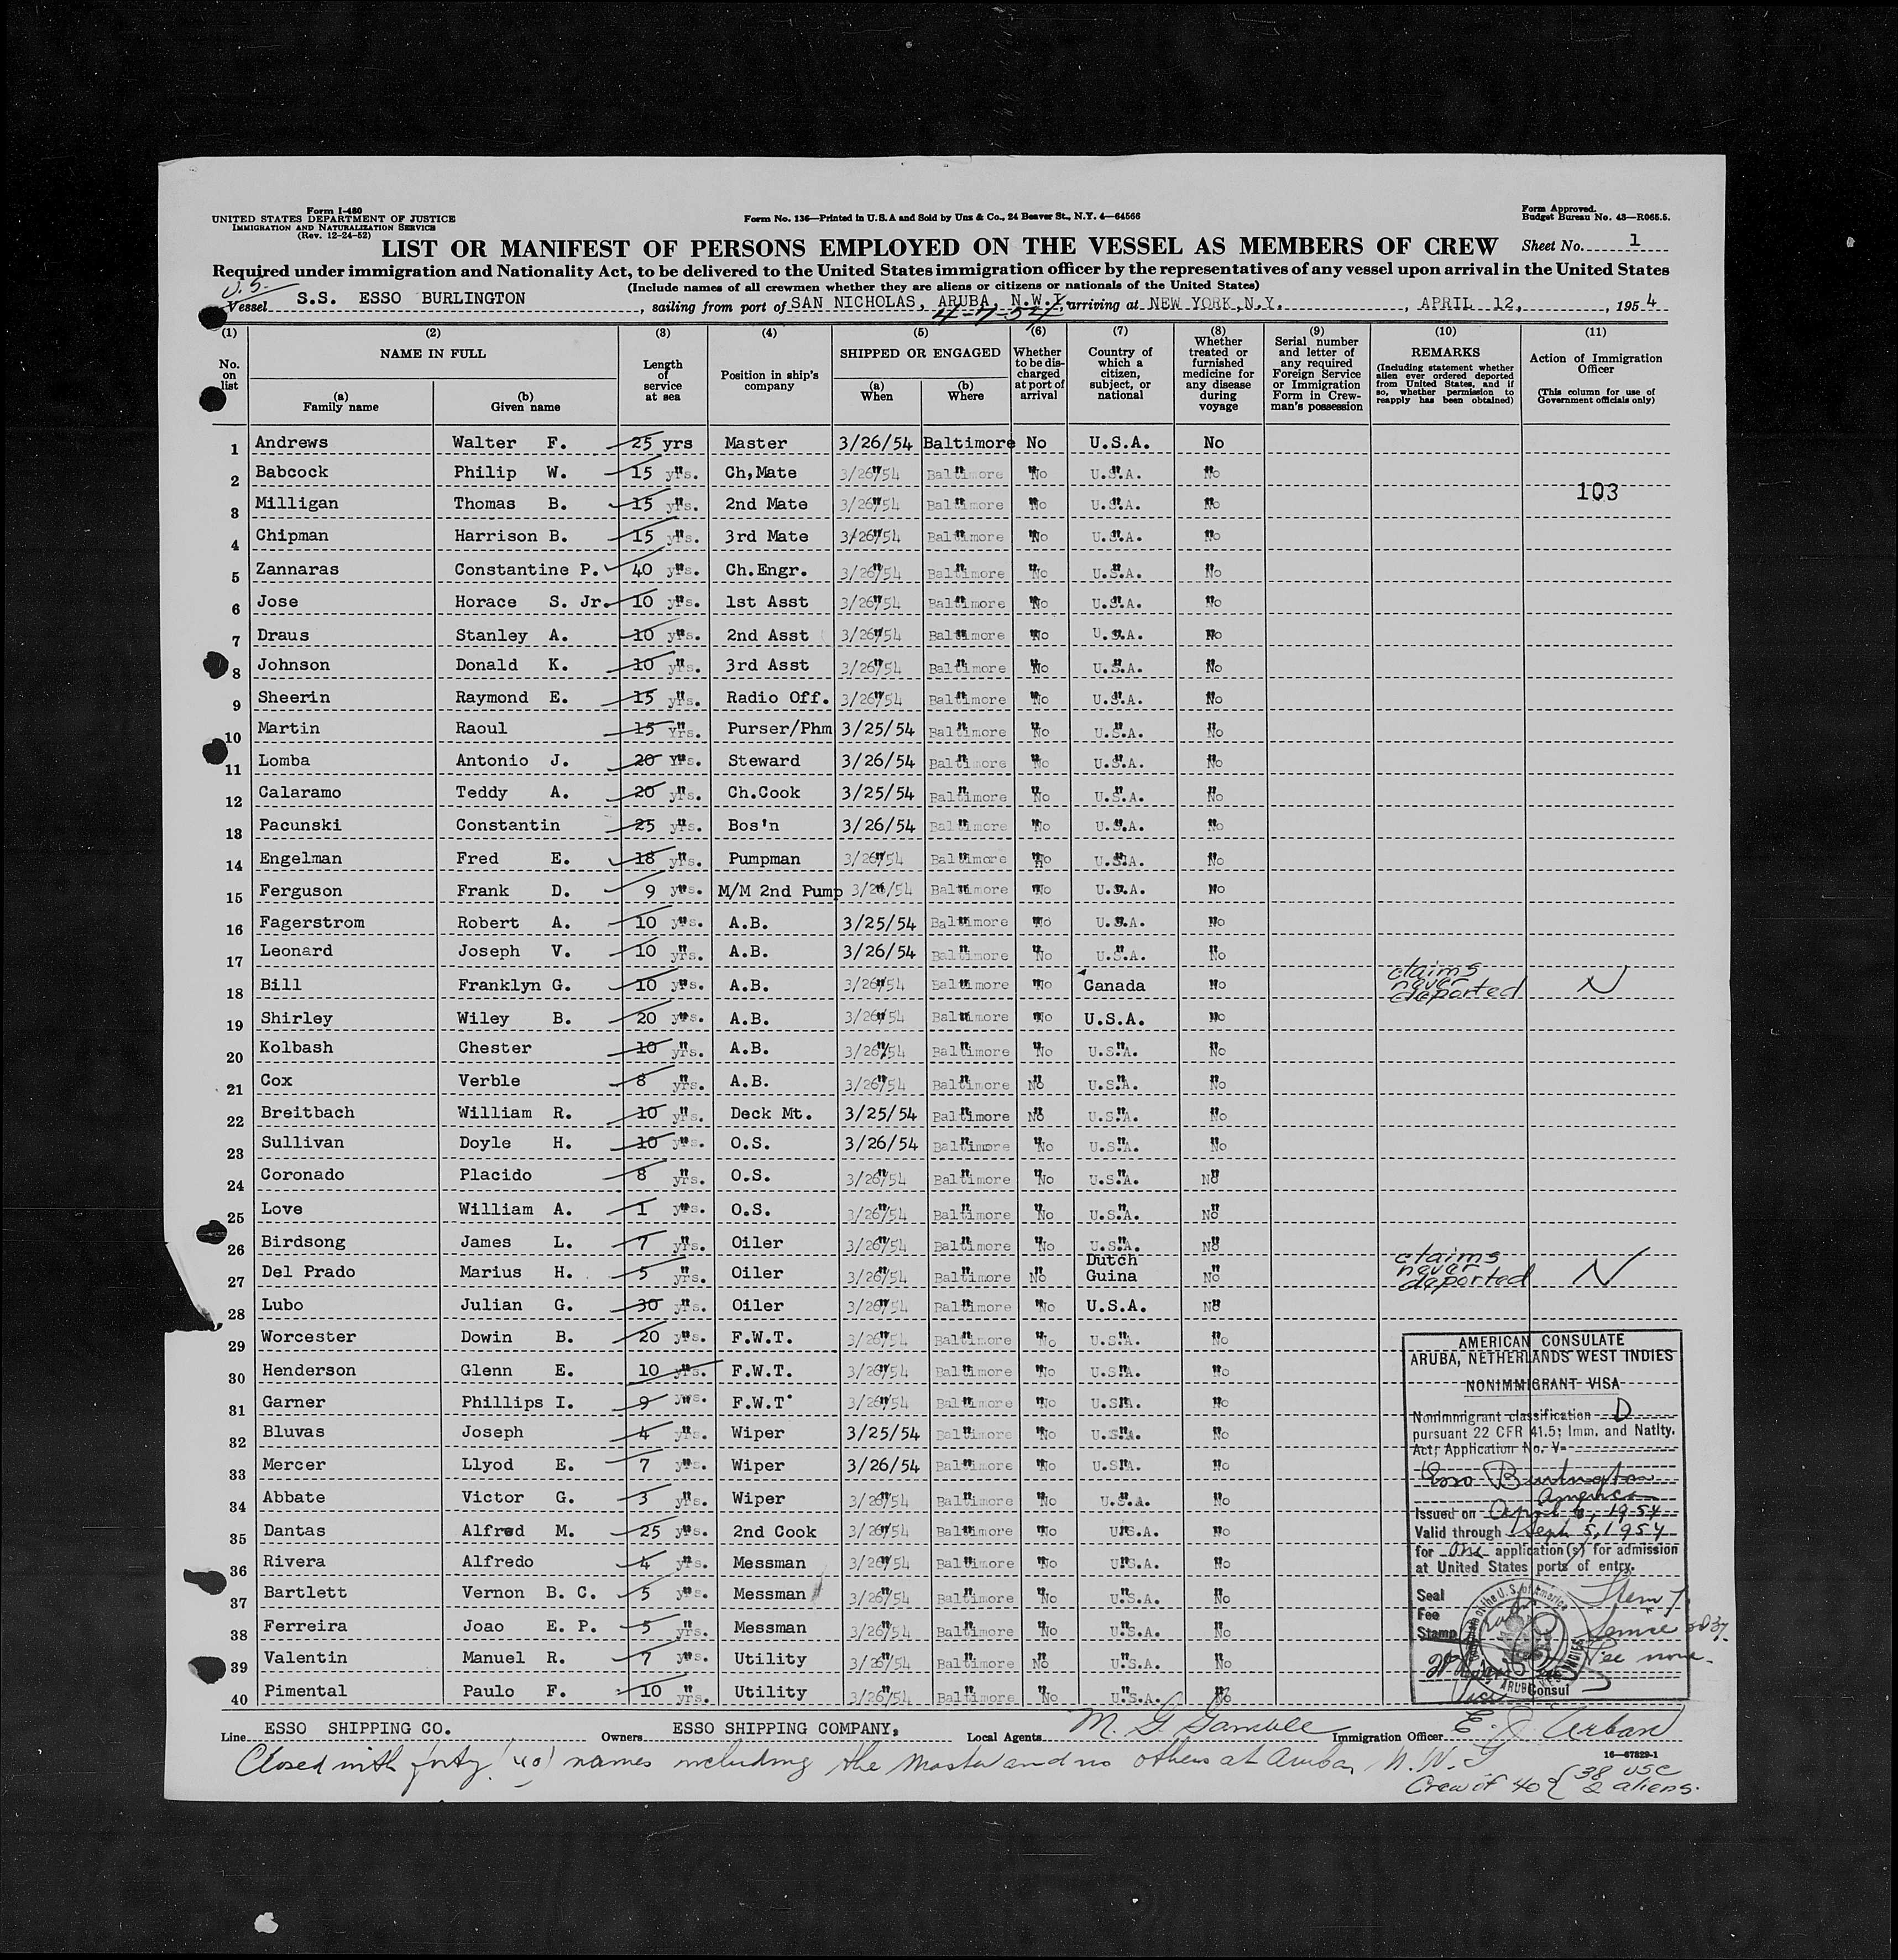 Form I-480
UNITED STATES DEPARTMENT OF JUSTICE
IMMIGRATION AND NATURALIZATION SERVICE
(Rev. 12-24-52)
Form No. 136—Printed in U.S.A and Sold by Unz & Co., 24 Beaver St., N.Y. 4—64566
Form Approved.
Budget Bureau No. 43—R065.5.
LIST OR MANIFEST OF PERSONS EMPLOYED ON THE VESSEL AS MEMBERS OF CREW
Sheet No. 1
Required under immigration and Nationality Act, to be delivered to the United States immigration officer by the representatives of any vessel upon arrival in the United States
(Include names of all crewmen whether they are aliens or citizens or nationals of the United States)
U.S.
Vessel S.S. ESSO BURLINGTON, sailing from port of SAN NICHOLAS, ARUBA, N.W.I. arriving at NEW YORK, N.Y., APRIL 12, 1954
4-7-54
(1) (2) (3) (4) (5) (6) (7) (8) (9) (10) (11)
No. on list
NAME IN FULL
(a) Family name
(b) Given name
Length of service at sea
Position in ship's company
SHIPPED OR ENGAGED
(a) When
(b) Where
Whether to be discharged at port of arrival
Country of which a citizen, subject, or national
Whether treated or furnished medicine for any disease during voyage
Serial number and letter of any required Foreign Service or Immigration Form in Crewman's possession
REMARKS
(Including statement whether alien ever ordered deported from United States, and if so, whether permission to reapply has been obtained)
Action of Immigration Officer
(This column for use of Government officials only)
1 Andrews Walter F. 25 yrs Master 3/26/54 Baltimore No U.S.A. No
2 Babcock Philip W. 15 yrs. Ch,Mate 3/26/54 Baltimore No U.S.A. No
103
3 Milligan Thomas B. 15 yrs. 2nd Mate 3/26/54 Baltimore No U.S.A. No
4 Chipman Harrison B. 15 yrs. 3rd Mate 3/26/54 Baltimore No U.S.A. No
5 Zannaras Constantine P. 40 yrs. Ch.Engr. 3/26/54 Baltimore No U.S.A. No
6 Jose Horace S. Jr. 10 yrs. 1st Asst 3/26/54 Baltimore No U.S.A. No
7 Draus Stanley A. 10 yrs. 2nd Asst 3/26/54 Baltimore No U.S.A. No
8 Johnson Donald K. 10 yrs. 3rd Asst 3/26/54 Baltimore No U.S.A. No
9 Sheerin Raymond E. 15 yrs. Radio Off. 3/26/54 Baltimore No U.S.A. No
10 Martin Raoul 15 Yrs. Purser/Phm 3/25/54 Baltimore No U.S.A. No
11 Lomba Antonio J. 20 Yrs. Steward 3/26/54 Baltimore No U.S.A. No
12 Calaramo Teddy A. 20 yrs. Ch.Cook 3/25/54 Baltimore No U.S.A. No
13 Pacunski Constantin 25 yrs. Bos'n 3/26/54 Baltimore No U.S.A. No
14 Engelman Fred E. 18 yrs. Pumpman 3/26/54 Baltimore No U.S.A. No
15 Ferguson Frank D. 9 yrs. M/M 2nd Pump 3/26/54 Baltimore No U.S.A. No
16 Fagerstrom Robert A. 10 yrs. A.B. 3/25/54 Baltimore No U.S.A. No
17 Leonard Joseph V. 10 yrs. A.B. 3/26/54 Baltimore No U.S.A. No
18 Bill Franklyn G. 10 yrs. A.B. 3/26/54 Baltimore No Canada No claims never deported N
19 Shirley Wiley B. 20 yrs. A.B. 3/26/54 Baltimore No U.S.A. No
20 Kolbash Chester 10 yrs. A.B. 3/26/54 Baltimore No U.S.A. No
21 Cox Verble 8 yrs. A.B. 3/26/54 Baltimore No U.S.A. No
22 Breitbach William R. 10 yrs. Deck Mt. 3/25/54 Baltimore No U.S.A. No
23 Sullivan Doyle H. 10 yrs. O.S. 3/26/54 Baltimore No U.S.A. No
24 Coronado Placido 8 yrs. O.S. 3/26/54 Baltimore No U.S.A. No
25 Love William A. 1 yrs. O.S. 3/26/54 Baltimore No U.S.A. No
26 Birdsong James L. 7 yrs. Oiler 3/26/54 Baltimore No U.S.A. No
27 Del Prado Marius H. 5 yrs. Oiler 3/26/54 Baltimore No Dutch Guina No claims never deported N
28 Lubo Julian G. 30 yrs. Oiler 3/26/54 Baltimore No U.S.A. No
29 Worcester Dowin B. 20 yrs. F.W.T. 3/26/54 Baltimore No U.S.A. No
30 Henderson Glenn E. 10 yrs. F.W.T. 3/26/54 Baltimore No U.S.A. No
31 Garner Phillips I. 9 yrs. F.W.T 3/26/54 Baltimore No U.S.A. No
32 Bluvas Joseph 4 yrs. Wiper 3/25/54 Baltimore No U.S.A. No
33 Mercer Llyod E. 7 yrs. Wiper 3/26/54 Baltimore No U.S.A. No
34 Abbate Victor G. 3 yrs. Wiper 3/26/54 Baltimore No U.S.A. No
35 Dantas Alfred M. 25 yrs. 2nd Cook 3/26/54 Baltimore No U.S.A. No
36 Rivera Alfredo 4 yrs. Messman 3/26/54 Baltimore No U.S.A. No
37 Bartlett Vernon B. C. 5 yrs. Messman 3/26/54 Baltimore No U.S.A. No
38 Ferreira Joao E. P. 5 yrs. Messman 3/26/54 Baltimore No U.S.A. No
39 Valentin Manuel R. 7 yrs. Utility 3/26/54 Baltimore No U.S.A. No
40 Pimental Paulo F. 10 yrs. Utility 3/26/54 Baltimore No U.S.A. No
AMERICAN CONSULATE
ARUBA, NETHERLANDS WEST INDIES
NONIMMIGRANT VISA
Nonimmigrant classification D
pursuant 22 CFR 41.5; Imm. and Natlty.
Act; Application No. V-
Esso Burlington
America
Issued on April 6, 1954
Valid through Sept 5, 1954
for one application(s) for admission
at United States ports of entry.
Seal
Fee
Stamp
Item 7
Service
Fee none
Vice Consul
Line ESSO SHIPPING CO. Owners ESSO SHIPPING COMPANY. Local Agents M. G. Gamble Immigration Officer E. J. Urban
16—67829-1
Closed with forty (40) names including the Master and no others at Aruba, N.W.I
Crew of 40 { 38 USC
2 aliens.